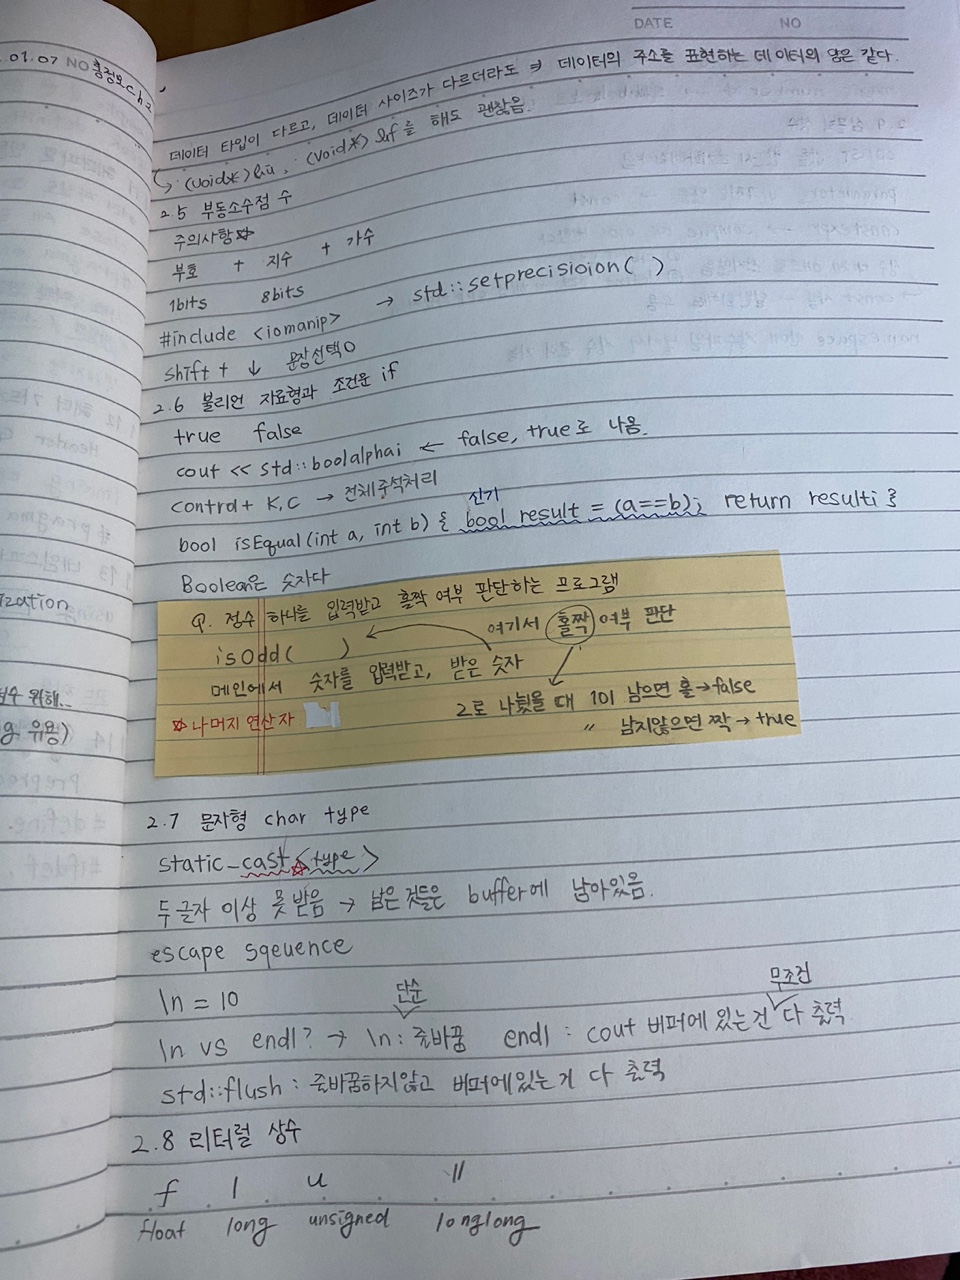 DATE NO
01.07 NO
데이터 타입이 다르고, 데이터 사이즈가 다르더라도 ⇒ 데이터의 주소를 표현하는 데이터의 양은 같다.
↳ (void*) &u, (void*) &f를 해도 괜찮음.
2.5 부동소수점 수
주의사항☆
부호 + 지수 + 가수
1bits 8bits
#include <iomanip> → std::setprecisioion( )
shift + ↓ 문장선택○
2.6 불리언 자료형과 조건운 if
true false
cout << std::boolalphai ← false, true로 나옴.
control + K,C → 전체주석처리
신기
bool isEqual(int a, int b) { bool result = (a==b); return resulti }
Boolean은 숫자다
Q. 정수 하나를 입력받고 홀짝 여부 판단하는 프로그램
isOdd( ) ← 여기서 홀짝 여부 판단
메인에서 숫자를 입력받고, 받은 숫자
2로 나눴을 때 1이 남으면 홀→false
☆나머지 연산자 〃 남지않으면 짝→true
ization
위해..
유용)
2.7 문자형 char type
static_cast<type>
두글자 이상 못받음 → 남은것들은 buffer에 남아있음.
escape sqeuence
\n = 10
단순 무조건
\n vs endl? → \n: 줄바꿈 endl : cout 버퍼에 있는건 다 출력.
std::flush : 줄바꿈하지않고 버퍼에있는거 다 출력
2.8 리터럴 상수
f l u ll
float long unsigned longlong